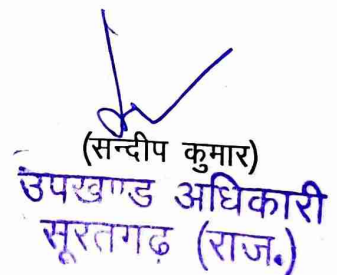 (सन्दीप कुमार)
उपखण्ड अधिकारी
सूरतगढ़ (राज.)